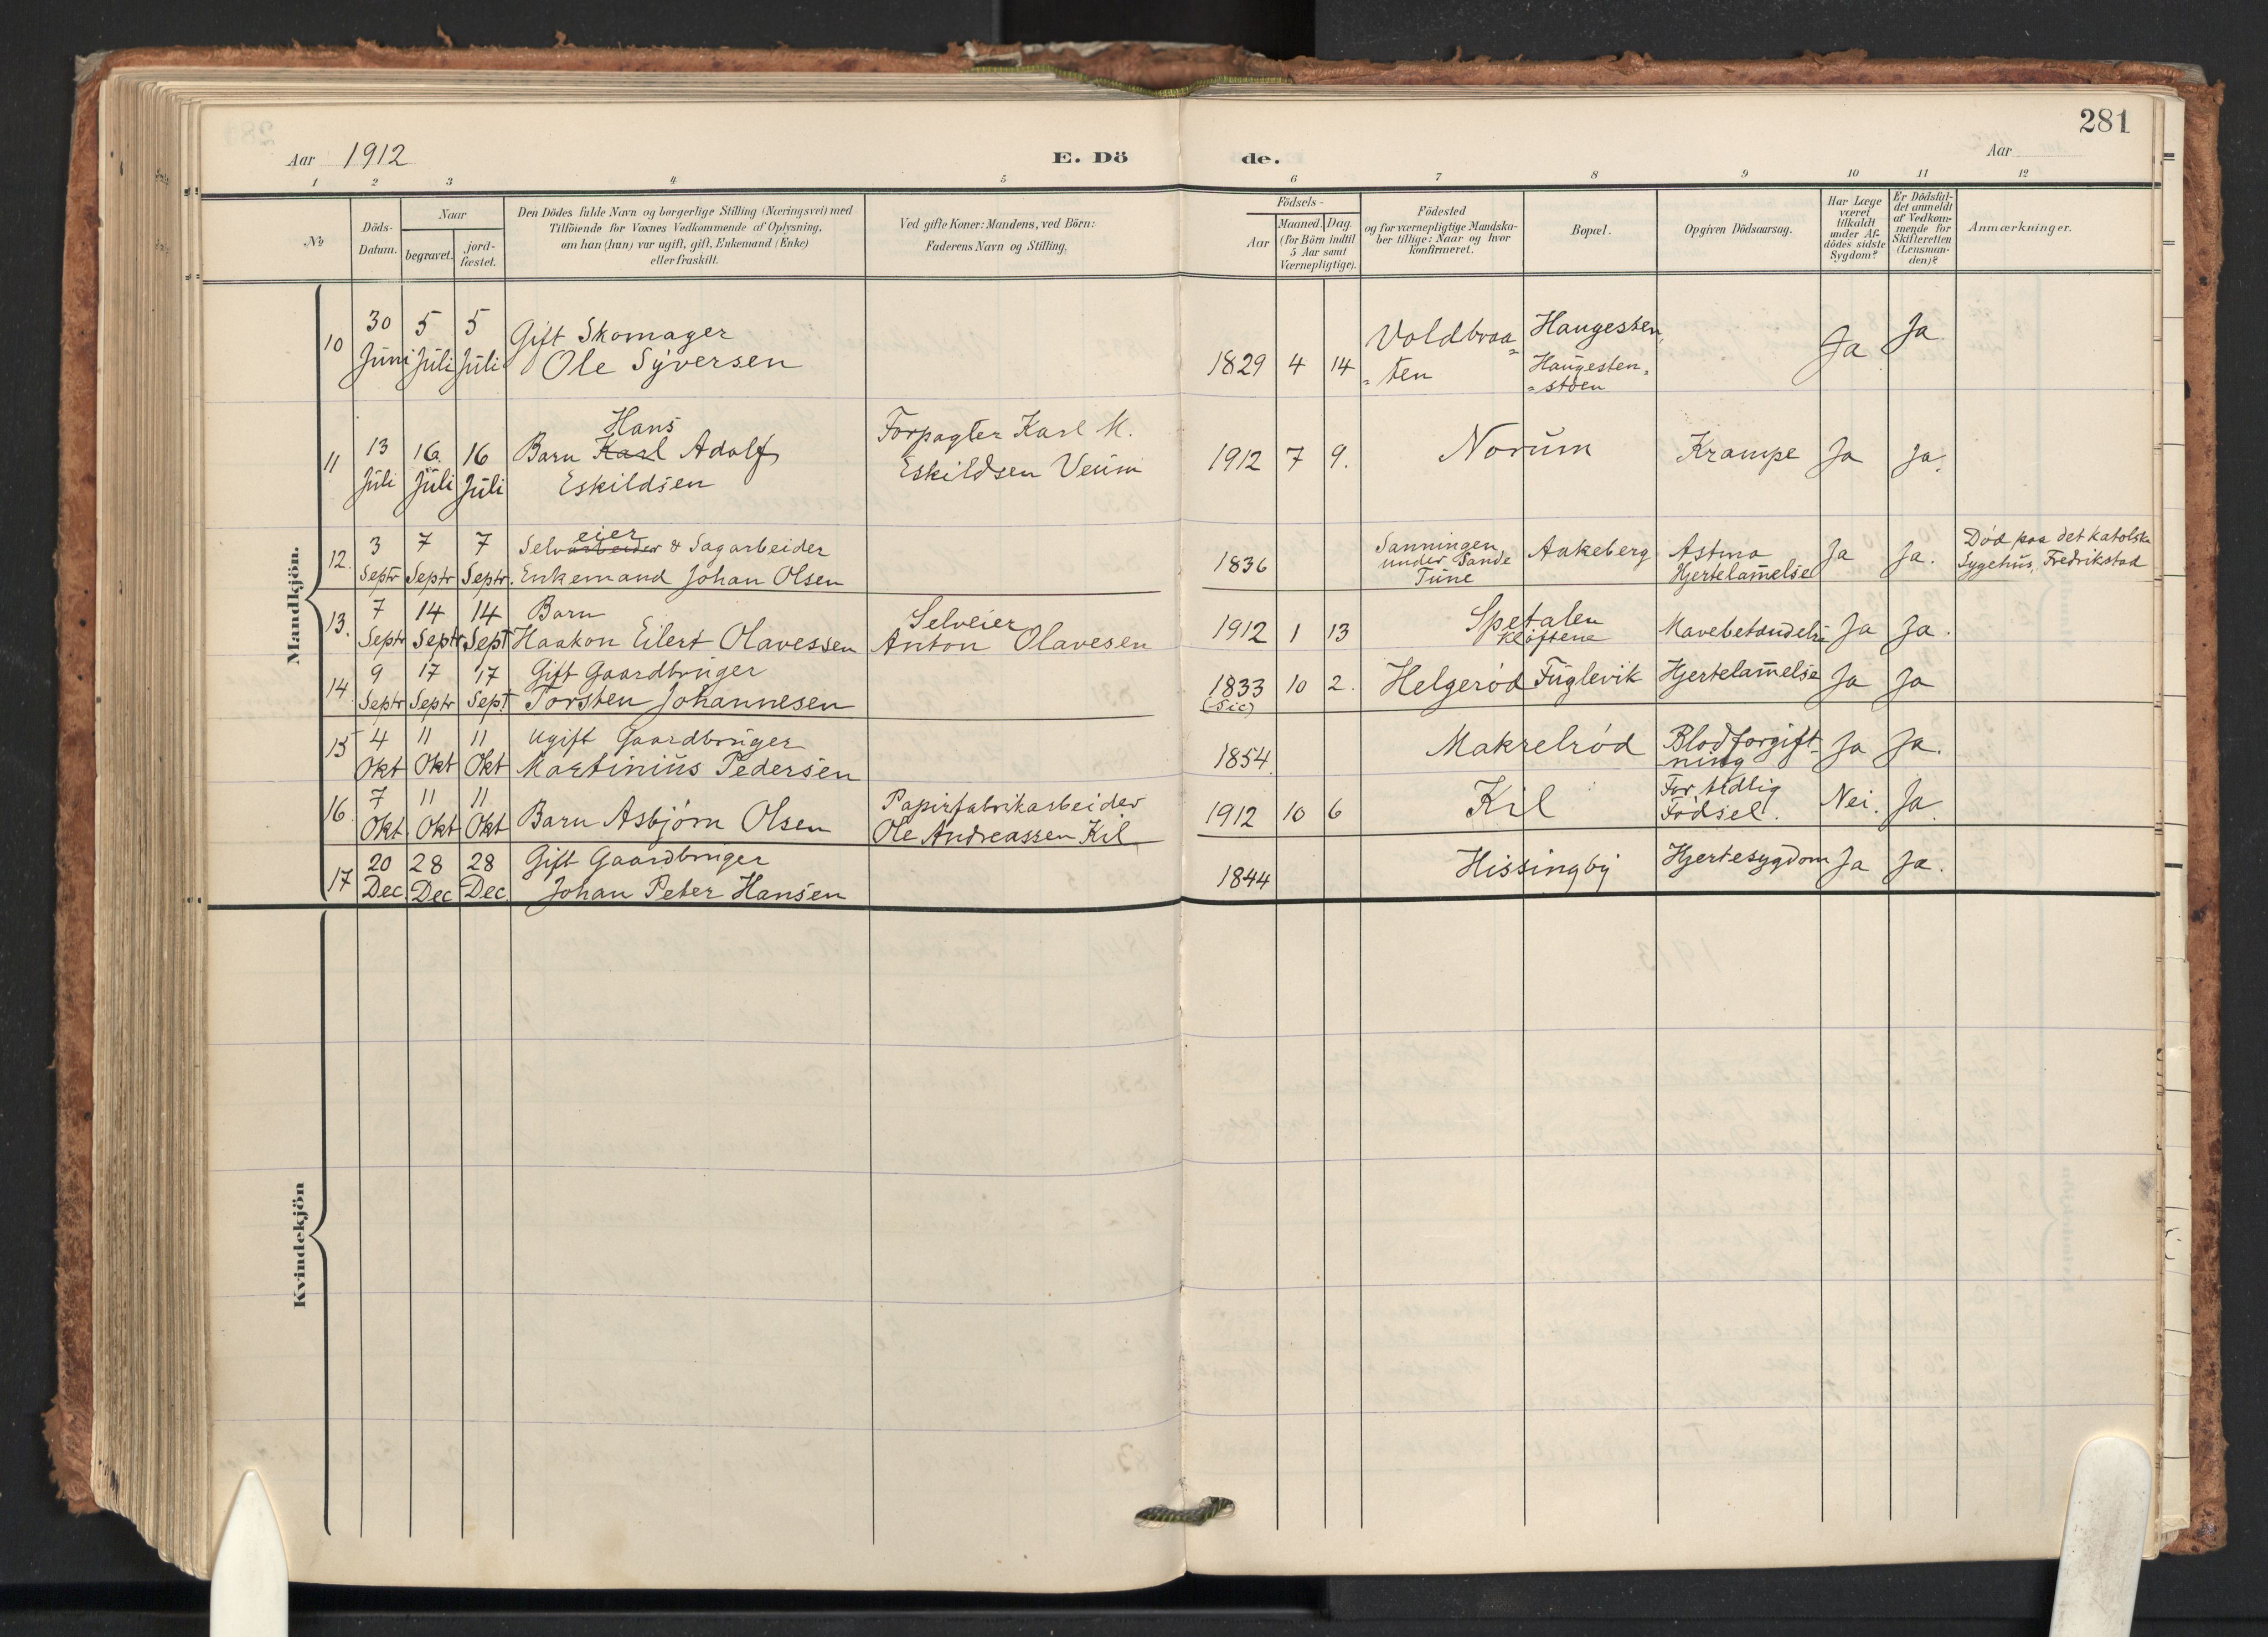 281
Aar 1912 E. Dö de. Aar
1 2 3 4 5 6 7 8 9 10 11 12
No
Döds-Datum.
Naar
begravet.
jord-
fæstet.
Den Dödes fulde Navn og borgerlige Stilling (Næringsvei) med
Tilföiende for Voxnes Vedkommende af Oplysning,
om han (hun) var ugift, gift, Enkemand (Enke)
eller fraskilt.
Ved gifte Koner: Mandens, ved Börn:
Faderens Navn og Stilling.
Födsels-
Aar
Maaned. Dag.
(for Börn indtil
5 Aar samt
Værnepligtige).
Födested
og for værnepligtige Mandska-
ber tillige: Naar og hvor
konfirmeret.
Bopæl.
Opgiven Dödsaarsag.
Har Læge
været
tilkaldt
under Af-
dödes sidste
Sygdom?
Er Dödsfal-
det anmeldt
af Vedkom-
mende for
Skifteretten
(Lensman-
den)?
Anmærkninger.
Mandkjön.
10 30 Juni 5 Juli 5 Juli Gift Skomager
Ole Syversen 1829 4 14 Voldbraa=
=ten Haugesten,
Haugesten=
=støen Ja Ja
11 13 Juli 16 Juli 16 Juli Barn Karl Hans Adolf
Eskildsen Forpagter Karl M.
Eskildsen Veum 1912 7 9. Norum Krampe Ja ja.
12. 3 Septr 7 Septr 7 Septr. Selvarbeider eier & Sagarbeider
Enkemand Johan Olsen 1836 Sanningen
under Sande
Tune Aakeberg Astma
Hjertelammelse Ja Ja. Død paa det katolske
Sygehus, Fredrikstad
13. 7 Septr 14 Septr 14 Sept Barn
Haakon Eilert Olavessen Selveier
Anton Olavesen 1912 1 13 Spetalen
Kløftene Mavebetændelse Ja Ja.
14 9 Septr 17 Septr 17 Sept Gift Gaardbruger
Torsten Johannesen 1833
(Sic) 10 2. Helgerød Fuglevik Hjertelammelse Ja Ja
15 4 Okt 11 Okt 11 Okt Ugift Gaardbruger
Martinius Pedersen 1854 Makrelrød Blodforgift-
ning Ja Ja.
16. 7 Okt. 11 Okt 11 Okt Barn Asbjørn Olsen Papirfabrikarbeider
Ole Andreassen Kil 1912 10 6 Kil For tidlig
Fødsel. Nei. Ja
17 20 Dec 28 Dec 28 Dec. Gift Gaardbruger
Johan Peter Hansen 1844 Hissingby Hjertesygdom Ja Ja.
Kvindekjön